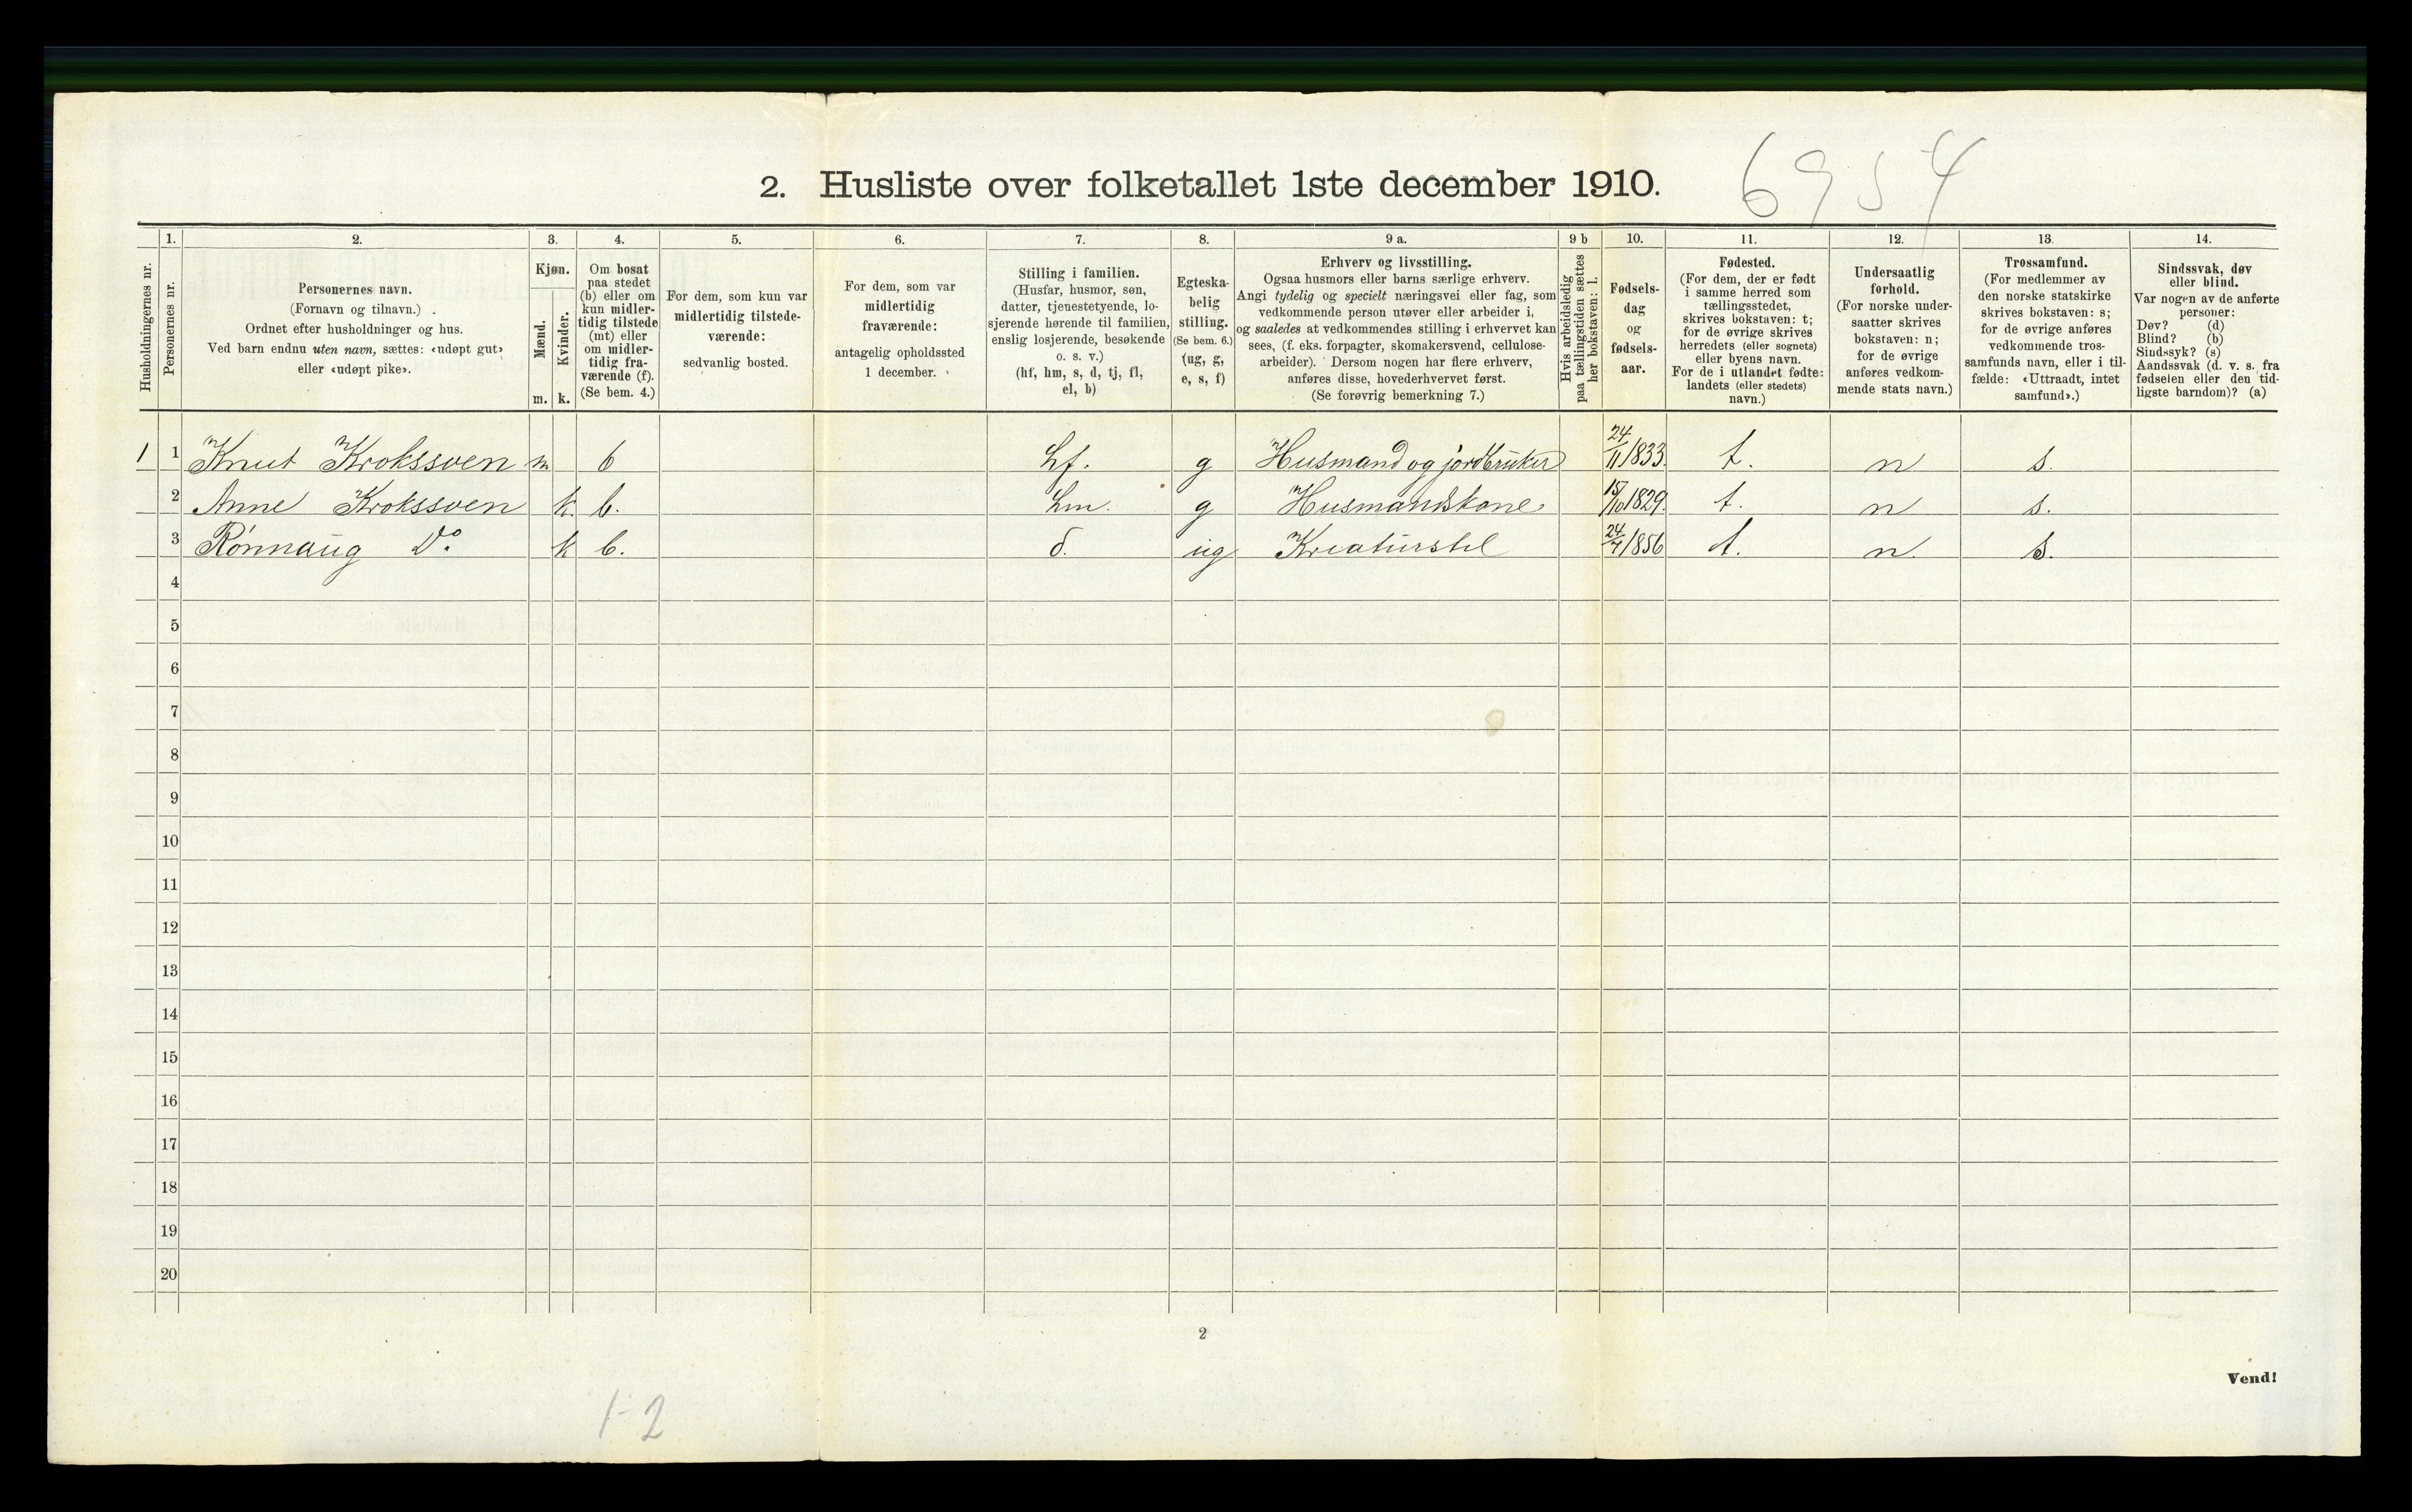 6954
2. Husliste over folketallet 1ste december 1910.
Husholdningernes nr.
1.
Personernes nr.
2.
Personernes navn.
(Fornavn og tilnavn.)
Ordnet efter husholdninger og hus.
Ved barn endnu uten navn, sættes: «udøpt gut»
eller «udøpt pike».
3.
Kjøn.
Mænd.
m.
Kvinder.
k.
4.
Om bosat
paa stedet
(b) eller om
kun midler-
tidig tilstede
(mt) eller
om midler-
tidig fra-
værende (f).
(Se bem. 4.)
5.
For dem, som kun var
midlertidig tilstede-
værende:
sedvanlig bosted.
6.
For dem, som var
midlertidig
fraværende:
antagelig opholdssted
1 december.
7.
Stilling i familien.
(Husfar, husmor, søn,
datter, tjenestetyende, lo-
sjerende hørende til familien,
enslig losjerende, besøkende
o. s. v.)
(hf, hm, s, d, tj, fl,
el, b)
8.
Egteska-
belig
stilling.
(Se bem. 6.)
(ug, g,
e, s, f)
9 a.
Erhverv og livsstilling.
Ogsaa husmors eller barns særlige erhverv.
Angi tydelig og specielt næringsvei eller fag, som
vedkommende person utøver eller arbeider i,
og saaledes at vedkommendes stilling i erhvervet kan
sees, (f. eks. forpagter, skomakersvend, cellulose-
arbeider). Dersom nogen har flere erhverv,
anføres disse, hovederhvervet først.
(Se forøvrig bemerkning 7.)
9 b
Hvis arbeidsledig
paa tællingstiden sættes
her bokstaven: l.
10.
Fødsels-
dag
og
fødsels-
aar.
11.
Fødested.
(For dem, der er født
i samme herred som
tællingsstedet,
skrives bokstaven: t;
for de øvrige skrives
herredets (eller sognets)
eller byens navn.
For de i utlandet fødte:
landets (eller stedets)
navn.)
12.
Undersaatlig
forhold.
(For norske under-
saatter skrives
bokstaven: n;
for de øvrige
anføres vedkom-
mende stats navn.)
13.
Trossamfund.
(For medlemmer av
den norske statskirke
skrives bokstaven: s;
for de øvrige anføres
vedkommende tros-
samfunds navn, eller i til-
fælde: «Uttraadt, intet
samfund».)
14.
Sindssvak, døv
eller blind.
Var nogen av de anførte
personer:
Døv? (d)
Blind? (b)
Sindssyk? (s)
Aandssvak (d. v. s. fra
fødselen eller den tid-
ligste barndom)? (a)
1 1 Knut Krokssven m b hf. g Husmand og jordbruker 24/11 1833. t. n s.
2 Anne Krokssven k. b. hm. g Husmandskone 15/10 1829. t. n s.
3 Rønnaug Do. k b. d. ug Kreaturstel 24/7 1856 t. n. s.
4
5
6
7
8
9
10
11
12
13
14
15
16
17
18
19
20
2
Vend!
1-2